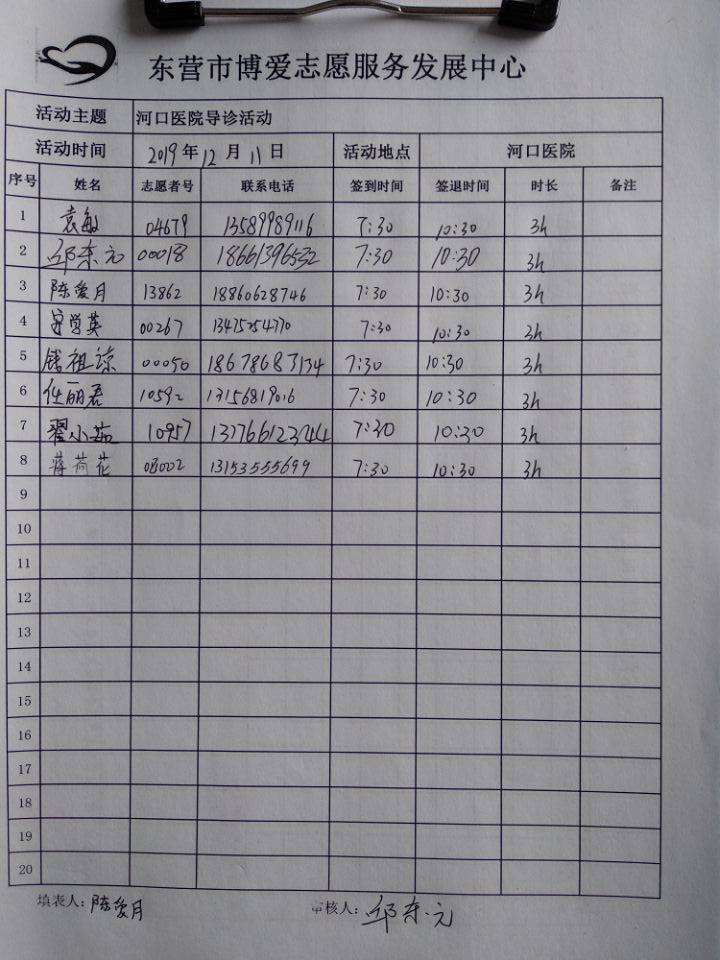 东营市博爱志愿服务发展中心
活动主题 河口医院导诊活动
活动时间 2019年12月11日 活动地点 河口医院
序号 姓名 志愿者号 联系电话 签到时间 签退时间 时长 备注
1 袁敏 04679 13589989116 7:30 10:30 3h
2 邱东元 00018 18661396532 7:30 10:30 3h
3 陈爱月 13862 18860628746 7:30 10:30 3h
4 学英 00267 13475254770 7:30 10:30 3h
5 钱祖琼 00050 18678687134 7:30 10:30 3h
6 任丽君 10592 13156819016 7:30 10:30 3h
7 翟小茹 10957 7:30 10:30 3h
8 蒋荷花 03002 13153555699 7:30 10:30 3h
9
10
11
12
13
14
15
16
17
18
19
20
填表人：陈爱月 审核人：邱东元